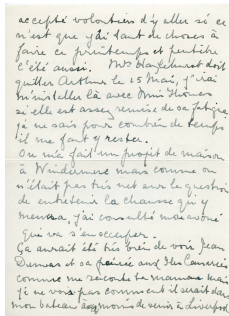 accepté volontiers d'y aller si ce
n'est que j'ai tant de choses à
faire ce printemps et peutêtre
c'été aussi. Mrs Hazlehurst doit
quitter Arthur le 15 Mai, j'irai
m'installer là avec Miss
si elle est assez remise de sa fatigue
je ne sais pour combien de temps
il me faut y rester.
On m'a fait un projet de maison
à Windermere mais comme on
n'était pas très net sur la question
de entretenir la chaussée qui y
menera, j'ai consulté mon avoué
qui va s'en occuper.
Ça aurait été très bien de voir Jean
Dumas et sa aux Iles Canaries
comme me raconte ta maman mais
je ne vois pas comment il serait dans
mon bateau à moins de venir à Liverpool